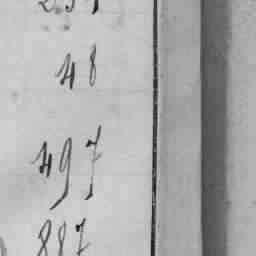 48
497
887